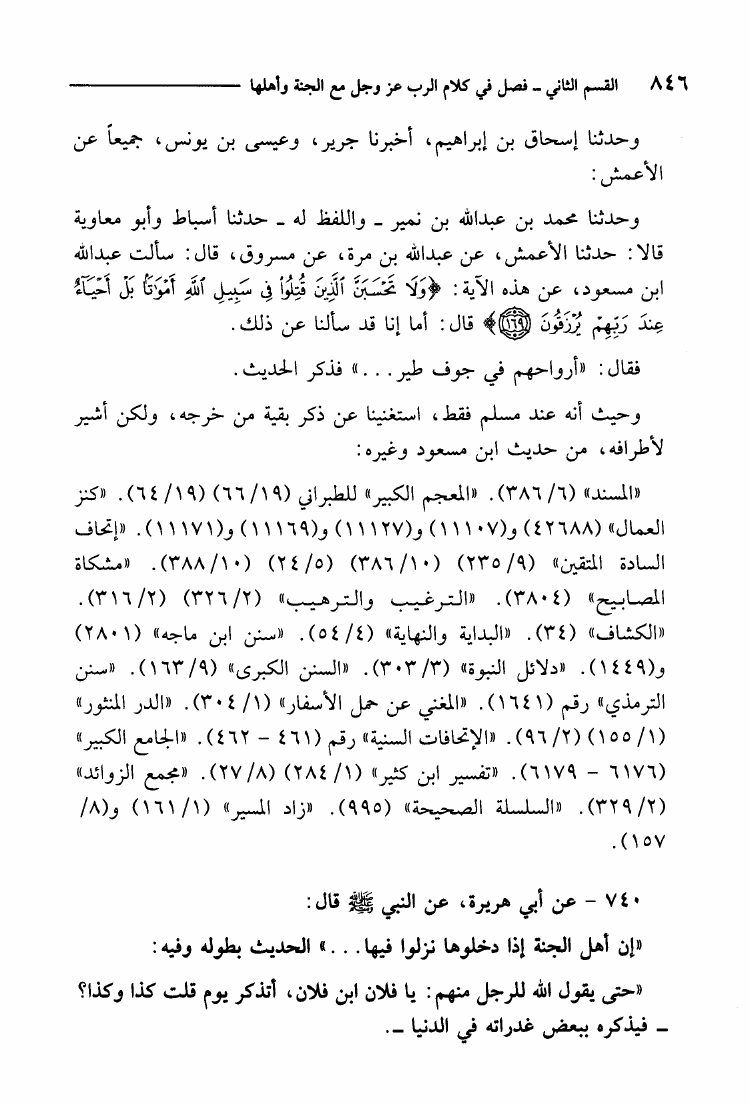 ٨٤٦ القسم الثاني ـ فصل في كلام الرب عز وجل مع الجنة وأهلها
وحدثنا إسحاق بن إبراهيم، أخبرنا جرير، وعيسى بن يونس، جميعاً عن
الأعمش:
وحدثنا محمد بن عبدالله بن نمير ـ واللفظ له ـ حدثنا أسباط وأبو معاوية
قالا: حدثنا الأعمش، عن عبدالله بن مرة، عن مسروق، قال: سألت عبدالله
ابن مسعود، عن هذه الآية: ﴿وَلَا تَحْسَبَنَّ ٱلَّذِينَ قُتِلُوا۟ فِى سَبِيلِ ٱللَّهِ أَمْوَٰتًۢا بَلْ أَحْيَآءٌ
عِندَ رَبِّهِمْ يُرْزَقُونَ ۝١٦٩﴾ قال: أما إنا قد سألنا عن ذلك.
فقال: «أرواحهم في جوف طير...» فذكر الحديث.
وحيث أنه عند مسلم فقط، استغنينا عن ذكر بقية من خرجه، ولكن أشير
لأطرافه، من حديث ابن مسعود وغيره:
«المسند» (٣٨٦/٦). «المعجم الكبير» للطبراني (٦٦/١٩) (٦٤/١٩). «كنز
العمال» (٤٢٦٨٨) و(١١١٠٧) و(١١١٢٧) و(١١١٦٩) و(١١١٧١). «إتحاف
السادة المتقين» (٢٣٥/٩) (٣٨٦/١٠) (٢٤/٥) (٣٨٨/١٠). «مشكاة
المصابيح» (٣٨٠٤). «الترغيب والترهيب» (٣٢٦/٢) (٣١٦/٢).
«الكشاف» (٣٤). «البداية والنهاية» (٥٤/٤). «سنن ابن ماجه» (٢٨٠١)
و(١٤٤٩). «دلائل النبوة» (٣٠٣/٣). «السنن الكبرى» (١٦٣/٩). «سنن
الترمذي» رقم (١٦٤١). «المغني عن حمل الأسفار» (٣٠٤/١). «الدر المنثور»
(١٥٥/١) (٩٦/٢). «الإتحافات السنية» رقم (٤٦١ – ٤٦٢). «الجامع الكبير»
(٦١٧٦ – ٦١٧٩). «تفسير ابن كثير» (٢٨٤/١) (٢٧/٨). «مجمع الزوائد»
(٣٢٩/٢). «السلسلة الصحيحة» (٩٩٥). «زاد المسير» (١٦١/١) و(٨/
١٥٧).
٧٤٠ – عن أبي هريرة، عن النبي ﷺ قال:
«إن أهل الجنة إذا دخلوها نزلوا فيها...» الحديث بطوله وفيه:
«حتى يقول الله للرجل منهم: يا فلان ابن فلان، أتذكر يوم قلت كذا وكذا؟
ـ فيذكره ببعض غدراته في الدنيا ـ.